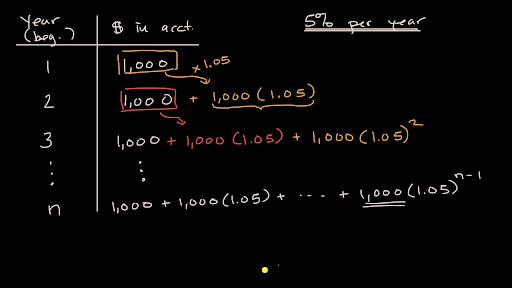 Year (beg.) $ in acct. 5% per year
1 1,000 x 1.05
2 1,000 + 1,000 (1.05)
3 1,000 + 1,000 (1.05) + 1,000 (1.05)²
⋮ ⋮
n 1,000 + 1,000 (1.05) + ⋯ + 1,000 (1.05)ⁿ⁻¹